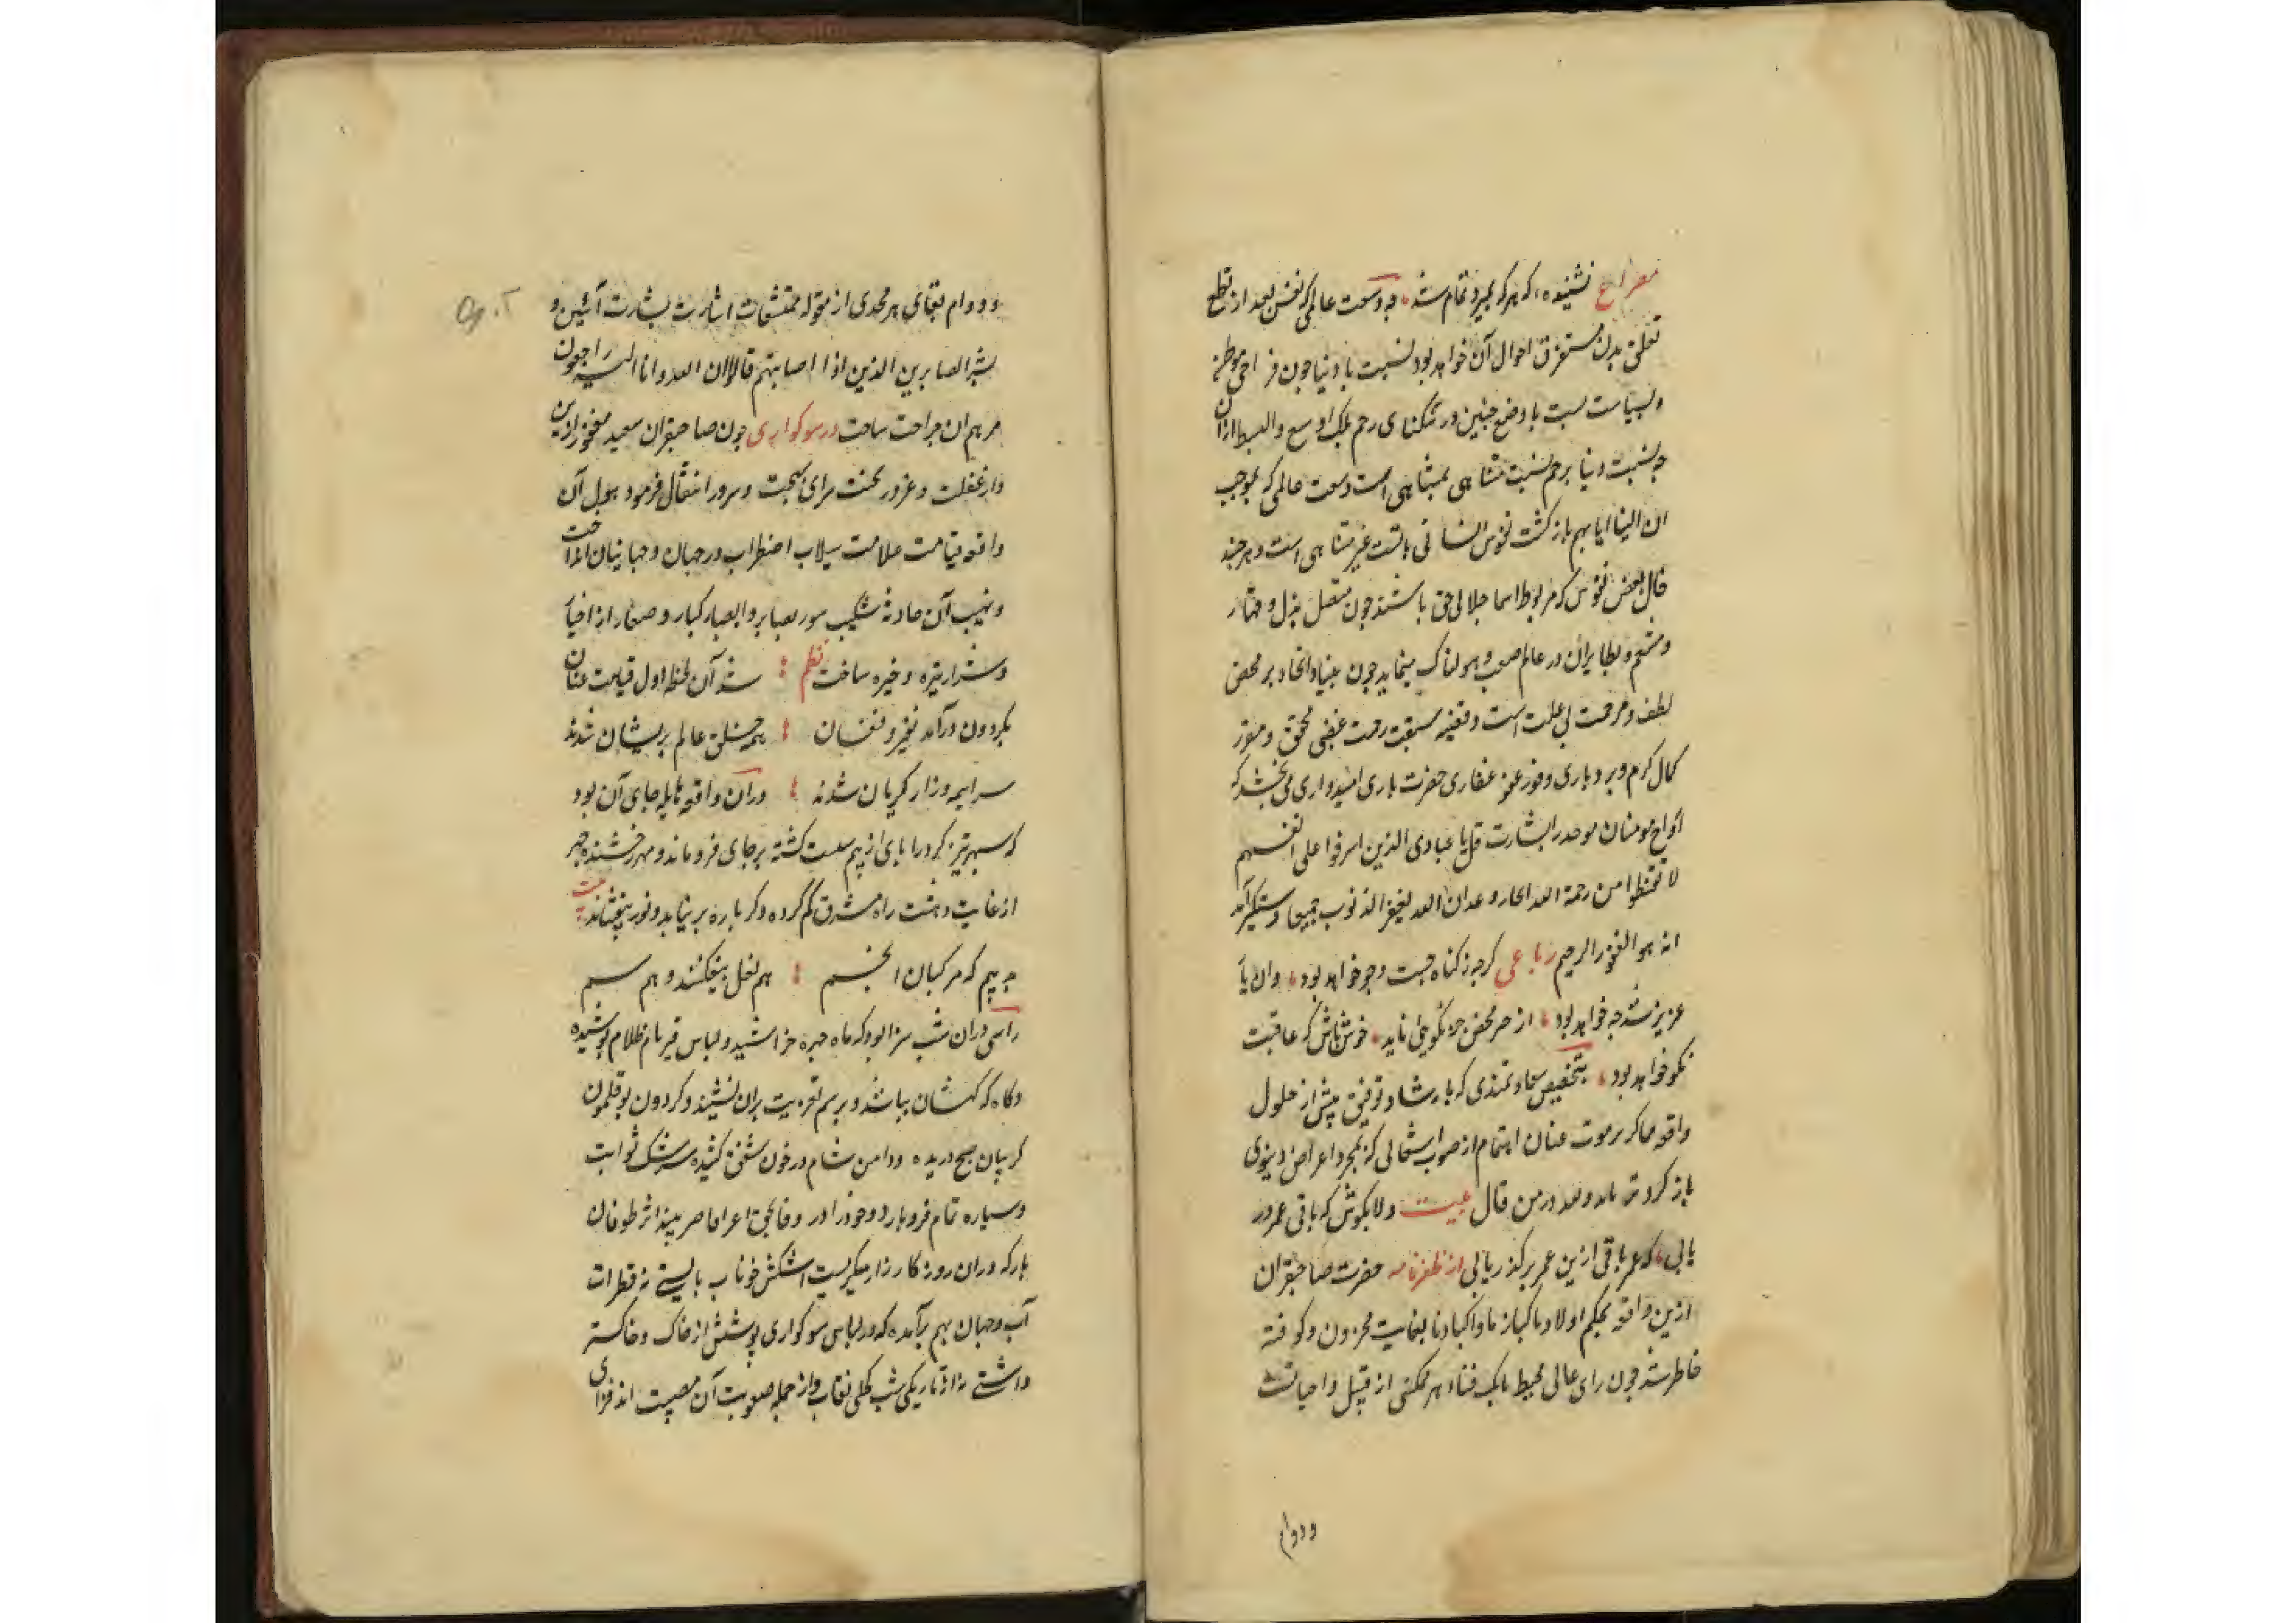 مصراع نشنیده که هر که بمیرد تمام شد چه وسعت عالمی که نفس بعد از قطع
تعلق بدن مستغرق احوال آن خواهد بود نسبت با دنیا چون فراخی موطن
دنیاست نسبت با وضع جنین در تنگنای رحم بلکه اوسع و ابسط ازان
چه نسبت دنیا برحم نسبت متناهی بمتناهی است وسعت عالمی که بموجب
ان الینا ایابهم بازگشت نفوس انسانی باتست غیر متناهی است و هر چند
حال بعض نفوس که مربوط اسما جلالی حق باشند چون منضل مذل و قهار
و منتقم و نظایر آن در عالم صعب و هولناک مینماید چون بنیاد اتحاد بر محض
لطف و مرحمت بی علت است و قضیه سبقت رحمت غضبی محقق و مقرر
کمال کرم و بردباری و وفور عفو غفاری حضرت باری امیدواری می بخشد که
ارواح مومنان موحد را بشارت قل یا عبادی الذین اسرفوا علی انفسهم
لا تقنطوا من رحمة الله ان الله یغفر الذنوب جمیعا دستگیر آمد
انه هو الغفور الرحیم رباعی گرچه ز گناه جست و جو خواهد بود وان یار
عزیز تندخو خواهد بود از خیر محض جز نکویی ناید خوش باش که عاقبت
نکو خواهد بود بتخصیص سعادتمندی که بارشاد توفیق پیش از حلول
واقعه ناگزیر موت عنان اهتمام از صوب اشتغالی که بمجرد اعراض دنیوی
باز گردد ولله در من قال بیت دلا بکوش که باقی عمر در
یابی که عمر باقی ازین عمر برگذر یابی از ظفرنامه حضرت صاحبقران
ازین واقعه بحکم اولادنا اکبادنا بغایت محزون و کوفته
خاطر شد چون رای عالی محیط بانک فناء هر ممکنی از قبیل واجباتست
ودوام
ودوام بقای هر محدی از مقوله ممتنعات اشارت بشارت آیین و
بشر الصابرین الذین اذا اصابتهم قالوا انا لله وانا الیه راجعون
مرهم ان جراحت ساخت در سوکواری چون صاحبقران سعید مغفور ازین
دار غفلت و غرور محنت سرای بهجت و سرور انتقال فرمود هول آن
واقعه قیامت علامت سیلاب اضطراب در جهان و جهانیان انداخت
و نهیب آن حادثه شکیب سوز بصایر و ابصار کبار و صغار از اخیار
و شرار تیره و خیره ساخت نظم شد آن لحظه اول قیامت عنان
بگردون درآمد نفیر و فغان همه خلق عالم پریشان شدند
سراسیمه و زار گریان شدند دران واقعه هایله جای آن بود
که سپهر تیز گرد را پای از بیم سست گشته بر جای فرو ماند و مهر رخشنده چهر
از غایت دهشت راه مشرق گم کرده دگر باره بر نیاید و نور نبخشاند بیت
چه بیم که مرکبان انجم هم نعل بیفکنند و هم سم
راستی دران شب سزا بود که ماه چهره خراشید و لباس قیرفام ظلام پوشیده
و کاه کهکشان بپاشد و برسم تعزیت بران نشیند و گردون بوقلمون
گریبان صبح دریده و دامن شام در خون شفق کشیده سرشک ثوابت
و سیاره تمام فرو بارد
بار که دران روزگار زار میگریست اشکش خوناب بایستی نه قطرات
آب و جهان بهم برآمده که در لباس سوکواری پوشش از خاک و خاکستر
داشتی نه از تاریکی شب کحلی نقاب و از جمله صعوبت آن مصیبت اندوه فزای